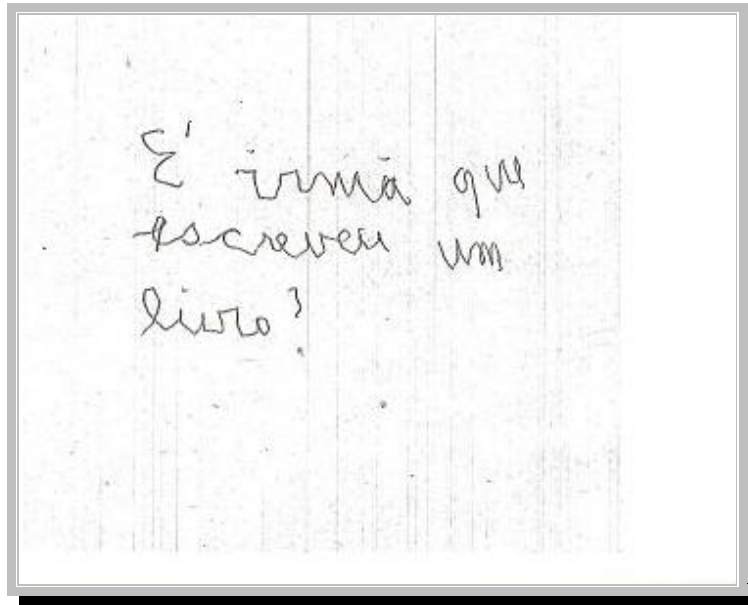 É irmã que
escreveu um
livro?